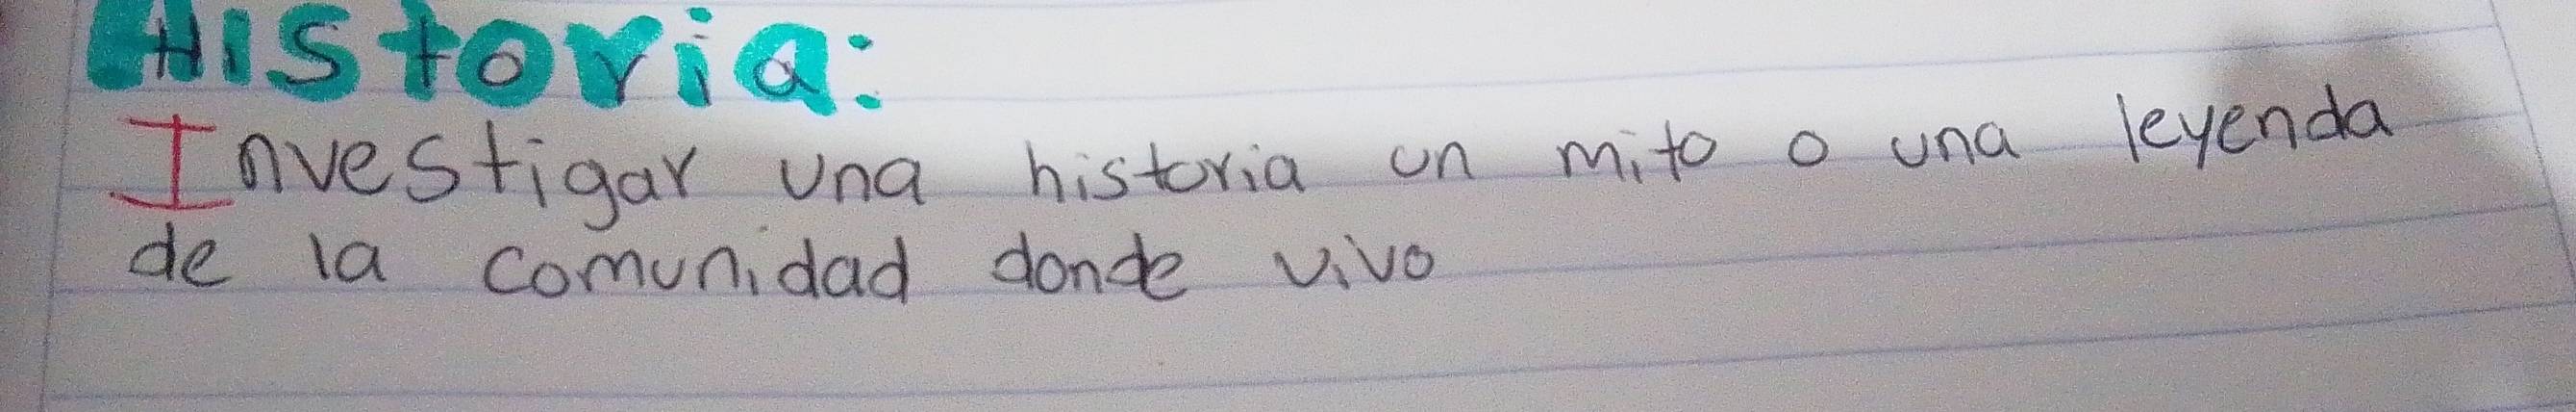 Historia:
Investigar una historia un mito o una leyenda
de la comunidad donde vivo